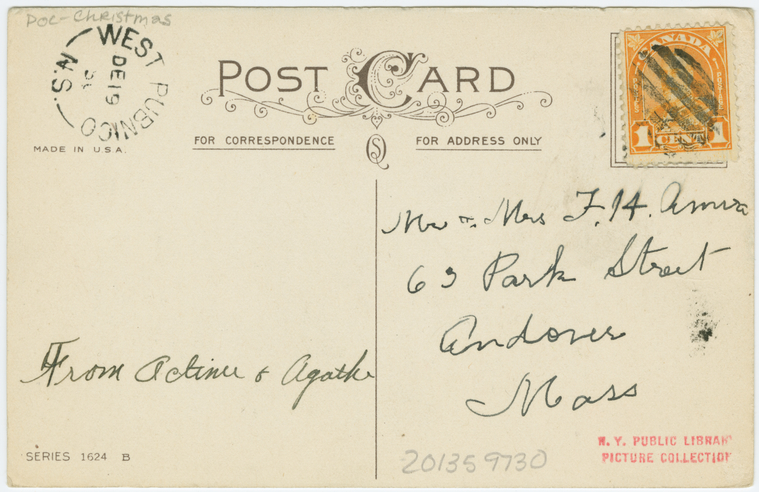 Poc-Christmas
WEST PUBNICO
DE 19
N.S.
MADE IN U.S.A.
POST CARD
FOR CORRESPONDENCE
FOR ADDRESS ONLY
CANADA
1 CENT 1
Mr & Mrs F. H.
63 Park Street
Andover
Mass
From & Agathe
SERIES 1624 B
201359730
N. Y. PUBLIC LIBRARY
PICTURE COLLECTION